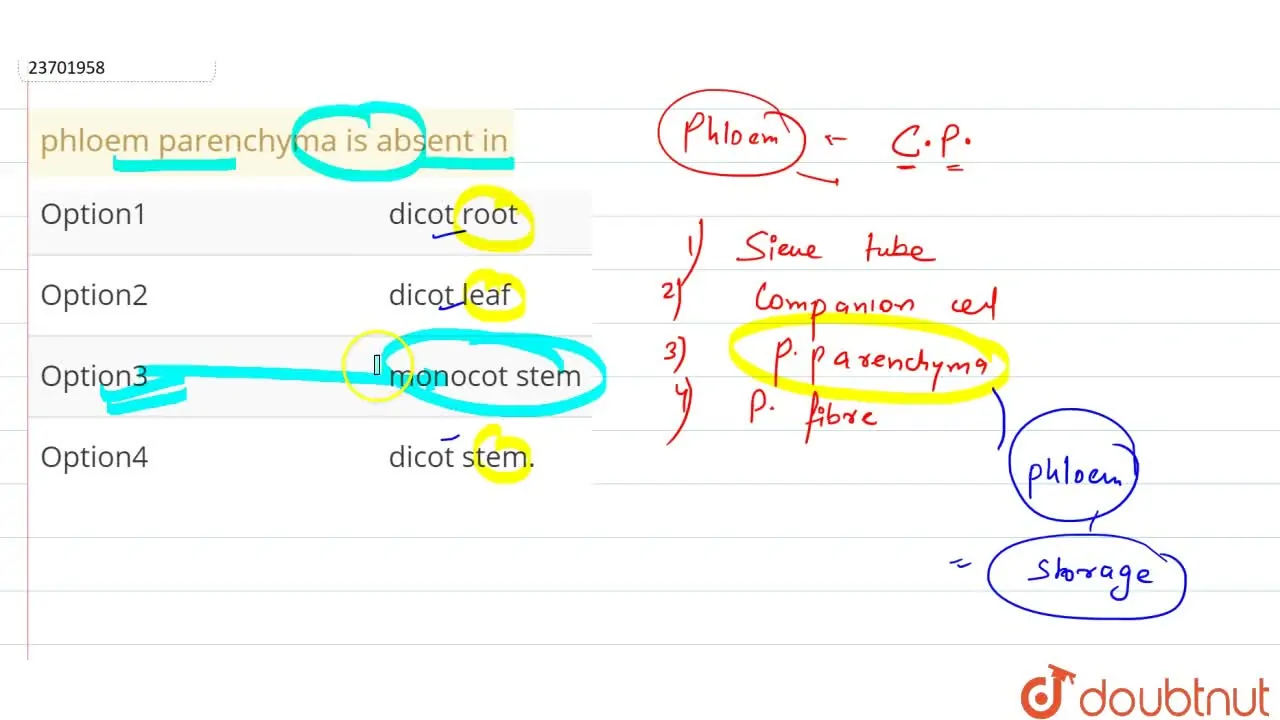 23701958
phloem parenchyma is absent in
Option1 dicot root
Option2 dicot leaf
Option3 monocot stem
Option4 dicot stem.
Phloem - C.P.
1) Sieve tube
2) Companion cell
3) P. parenchyma
4) P. fibre
phloem
= Storage
doubtnut